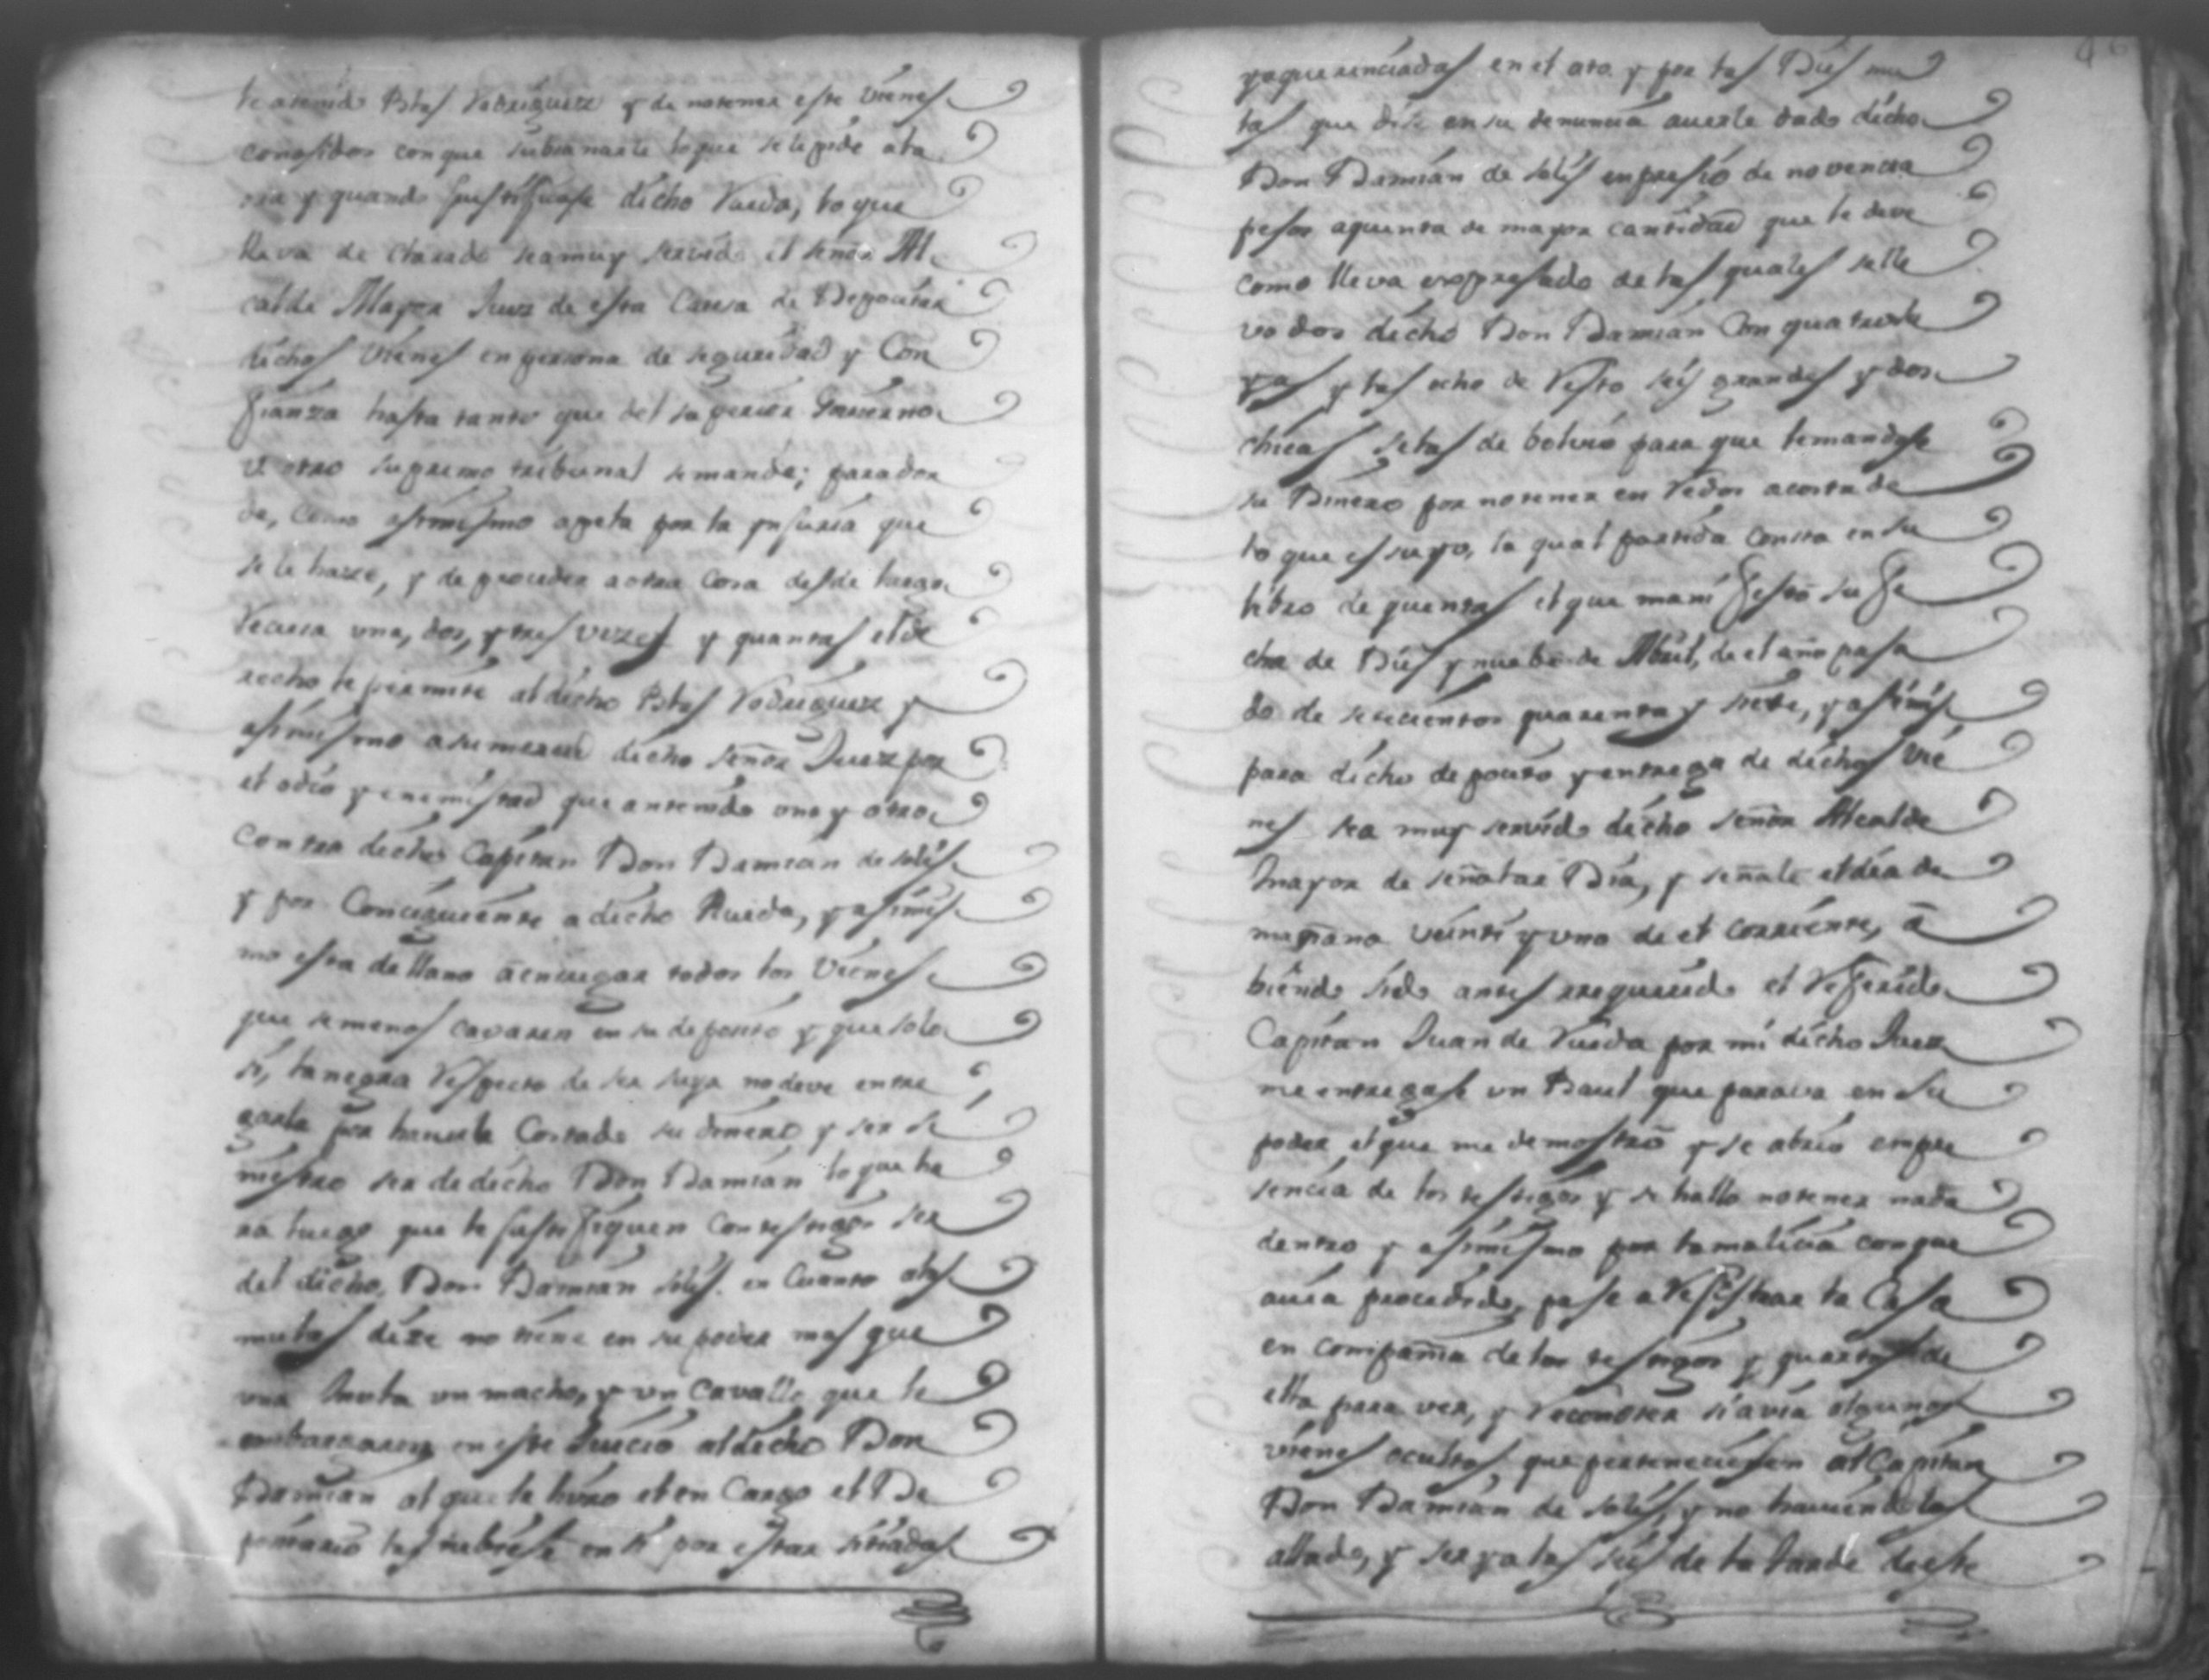 le a tenido Blas Rodriguez y de no tener este vienes
conosidos con que subsanarle lo que se le pide aora
ora y quando justifique dicho Rueda, lo que
lleva declarado sea muy servido el señor Al
calde Mayor Juez de esta Causa de Depocitar
dichos vienes en persona de seguridad y Con
fianza hasta tanto que del superior Govierno
u otro supremo tribunal se mande; para don
de, como asimismo apela por la ynjuria que
se le haze, y de proceder a otra Cosa desde luego
Recusa una, dos, y tres vezes y quantas el de
recho le permite al dicho Blas Rodriguez y
asimismo a su merced dicho señor Juez por
el odio y enemistad que an tenido uno y otro
contra dicho Capitan Don Damian de solis
y por Conciguiente a dicho Rueda, y asimis
mo esta de llano a entregar todos los Vienes
que se menos cavaren en su deposito y que solo
si, la negra Respecto de ser suya no deve entre
garla por haverle Costado su dinero y ser si
niestro ser de dicho Don Damian lo que ha
ra luego que le justifiquen con testigos ser
del dicho, Don Damian solis. en Cuanto a las
mulas dize no tiene en su poder mas que
una mula un macho, y un Cavallo que le
embargaron en este Juicio al dicho Don
Damian al que le hizo el en Cargo el De
pocitario las por estar sitiadas
yaquerenciadas en el ato y por las Dies mu
las que dise en su denuncia averle dado dicho
Don Damian de solis en presio de noventa
pesos a quenta de mayor cantidad que le deve
como lleva expresado de las quales se lle
vo dos dicho Don Damian Con
y las ocho de Resto seis grandes y dos
chicas se las de bolvio para que le mandase
su Dinero por no tener en Redos a costa de
lo que es suyo, la qual partida consta en su
libro de quentas el que manifesto su fe
cha de Dies y nuebe de Abril, de el año pasa
do de setecientos quarenta y siete, y asimis
para dicho deposito y entrega de dichos vie
nes sea muy servido dicho señor Alcalde
mayor de señalar Dia, y señale el dia de
mañana veinti y uno de el corriente, a
biendo sido antes rrequerido el Referido
Capitan Juan de Rueda por mi dicho Juez
me entregase un Baul que parava en su
poder el que me demostro y se abrio en pre
sencia de los testigos y se hallo no tener nada
dentro y asimismo por la malicia con que
avia procedido, pase a Rejistrar la Casa
en compañia de los testigos y quartos de
ella para ver, y Reconoser si avia algunos
vienes ocultos que pertenecieсen al Capitan
Don Damian de solis, y no haviendolos
allado, y ser ya las seis de la tarde de este